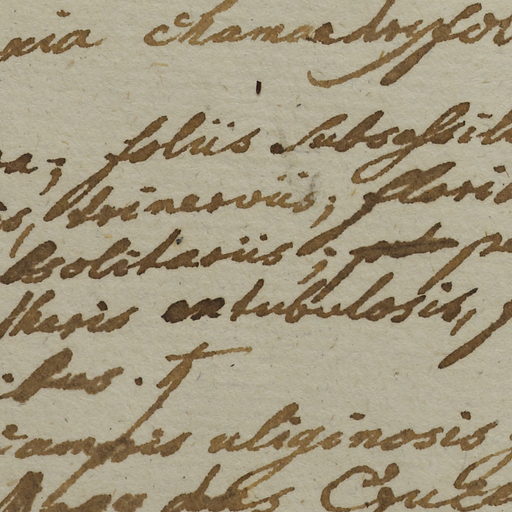 chamaedryfol
foliis subsessil
trinerviis; flori
solitariis;
theris entubulosis,
bus.
campis uliginosis
das Cruze